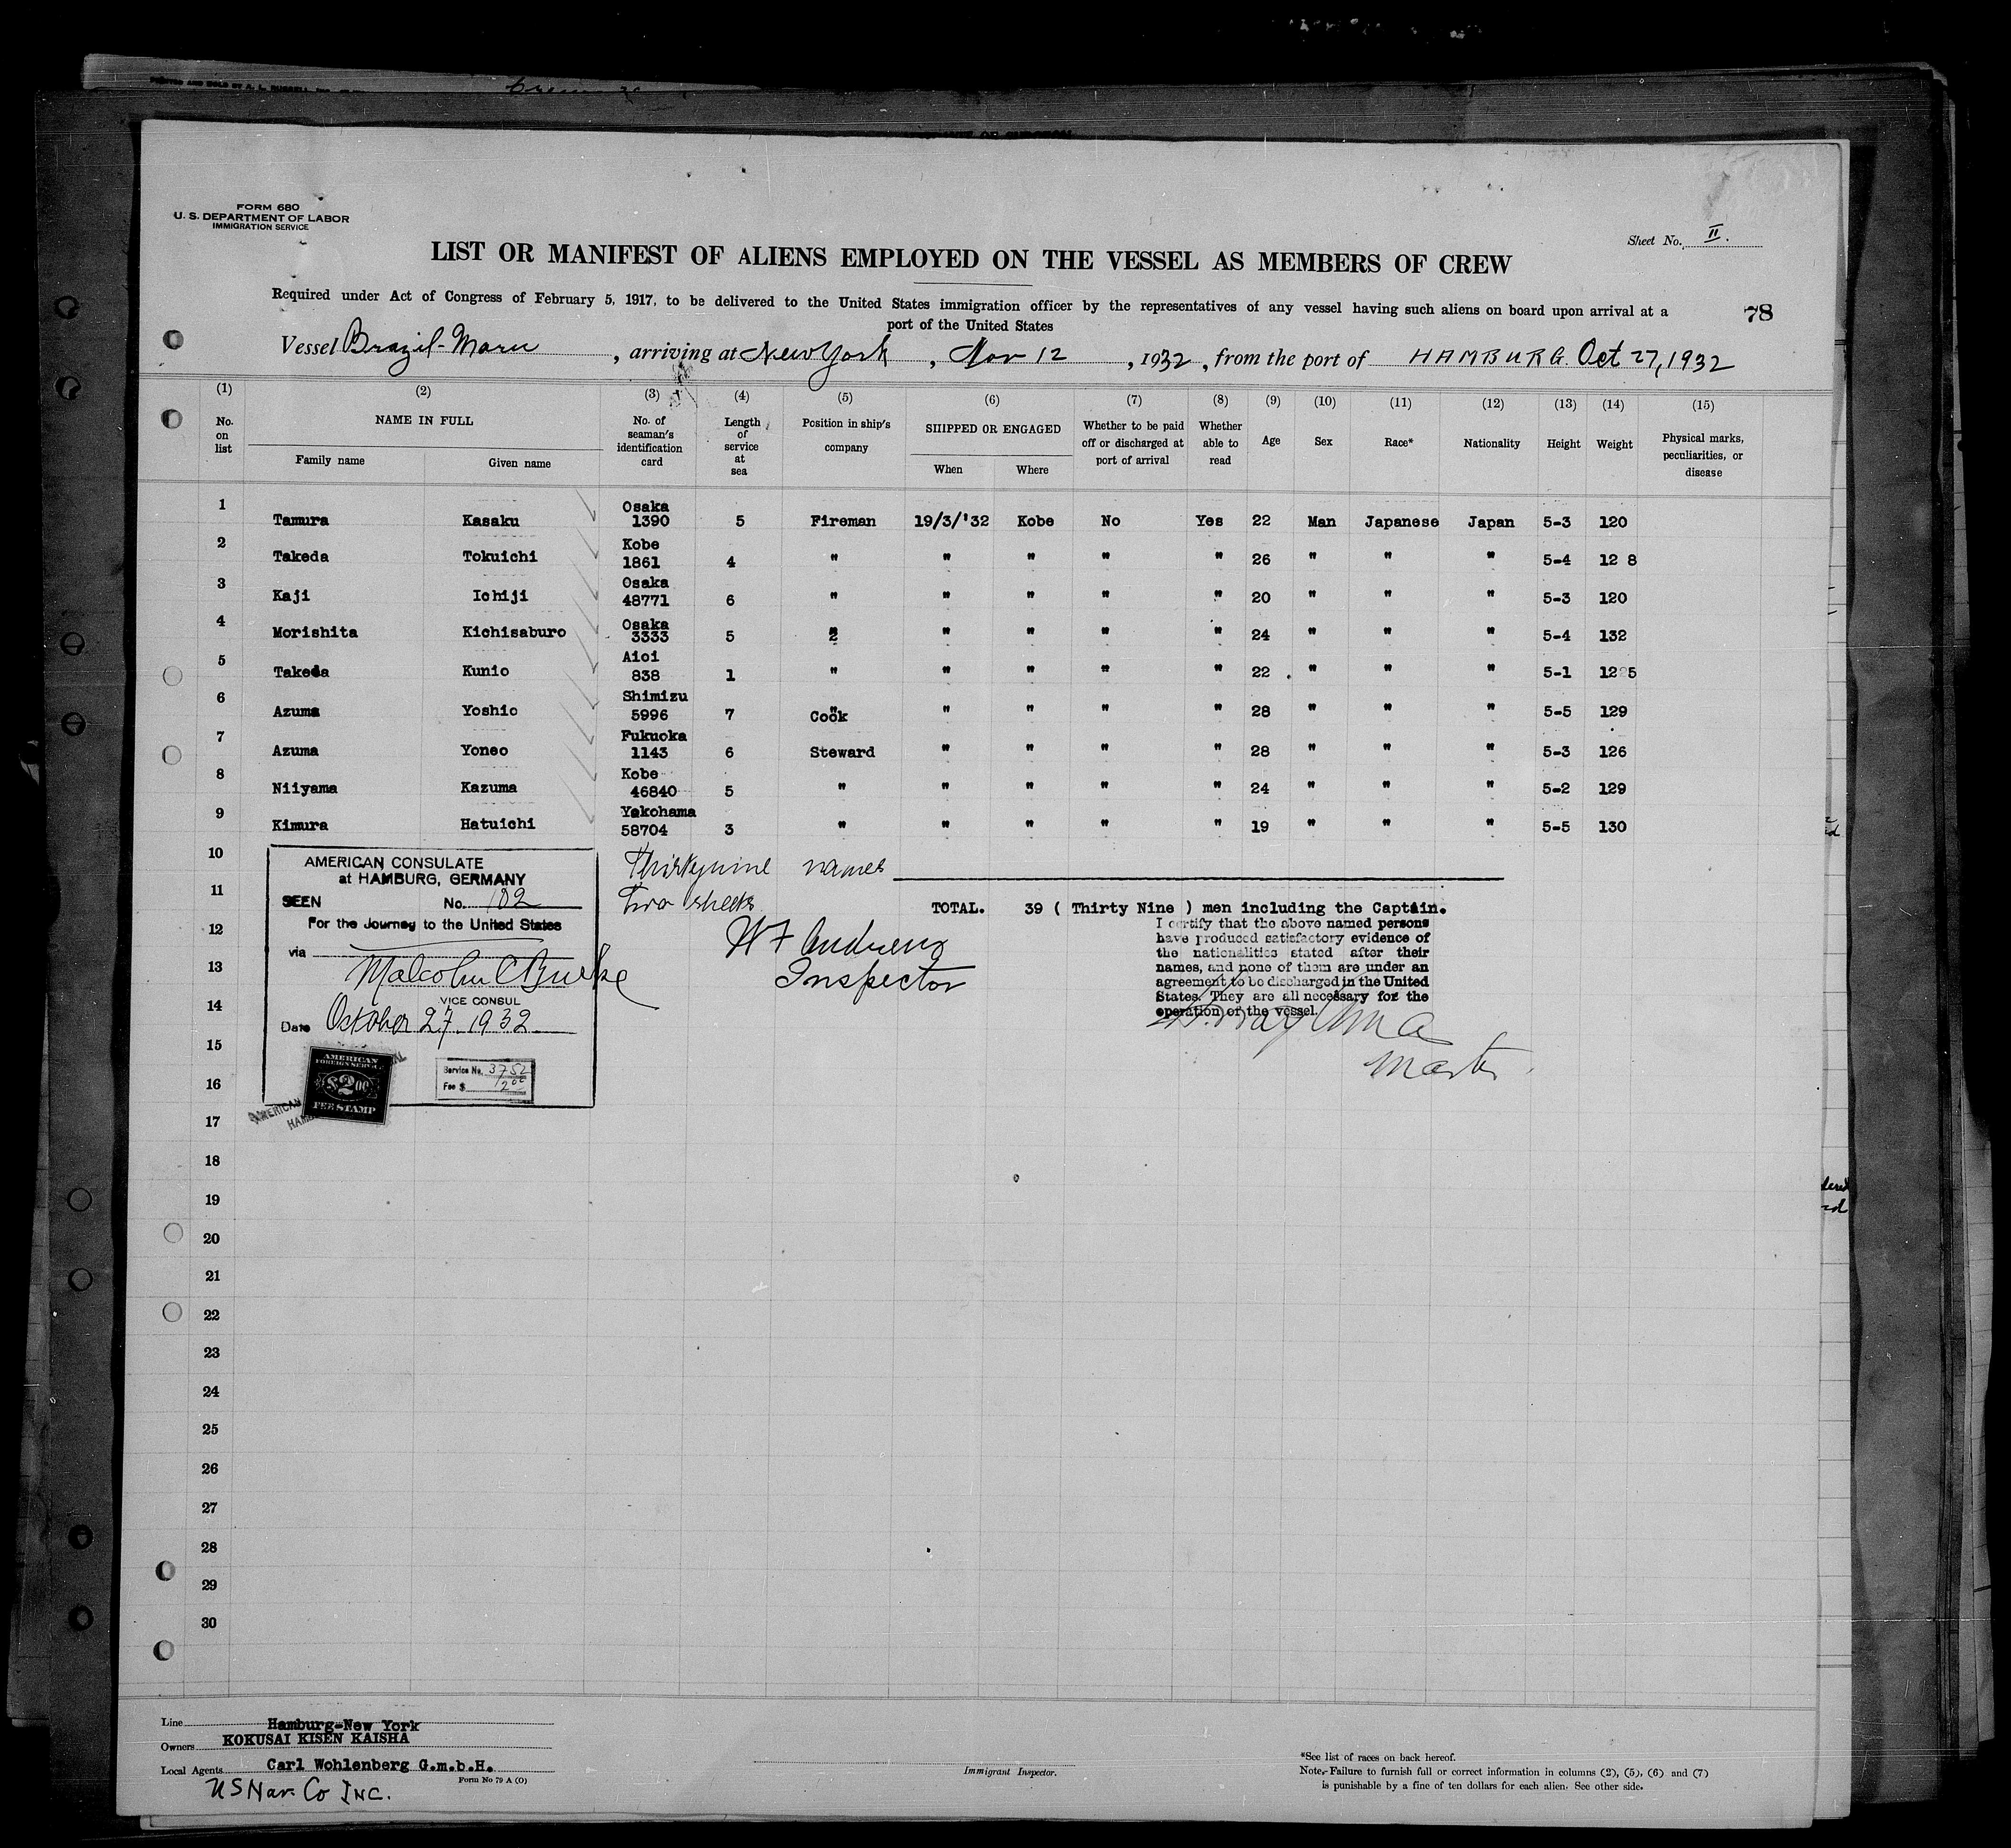 FORM 680
U. S. DEPARTMENT OF LABOR
IMMIGRATION SERVICE
Sheet No. II.
LIST OR MANIFEST OF ALIENS EMPLOYED ON THE VESSEL AS MEMBERS OF CREW
Required under Act of Congress of February 5, 1917, to be delivered to the United States immigration officer by the representatives of any vessel having such aliens on board upon arrival at a
port of the United States
78
Vessel Brazil-Maru, arriving at New York, Nov 12, 1932, from the port of HAMBURG. Oct 27, 1932
(1) (2) (3) (4) (5) (6) (7) (8) (9) (10) (11) (12) (13) (14) (15)
No. on list
NAME IN FULL
Family name Given name
No. of seaman's identification card
Length of service at sea
Position in ship's company
SHIPPED OR ENGAGED
When Where
Whether to be paid off or discharged at port of arrival
Whether able to read
Age
Sex
Race*
Nationality
Height
Weight
Physical marks, peculiarities, or disease
1 Tamura Kasaku Osaka 1390 5 Fireman 19/3/'32 Kobe No Yes 22 Man Japanese Japan 5-3 120
2 Takeda Tokuichi Kobe 1861 4 " " " " " 26 " " " 5-4 12 8
3 Kaji Ichiji Osaka 48771 6 " " " " " 20 " " " 5-3 120
4 Morishita Kichisaburo Osaka 3333 5 " " " " " 24 " " " 5-4 132
5 Takeda Kunio Aioi 838 1 " " " " " 22 " " " 5-1 125
6 Azuma Yoshio Shimizu 5996 7 Cook " " " " 28 " " " 5-5 129
7 Azuma Yoneo Fukuoka 1143 6 Steward " " " " 28 " " " 5-3 126
8 Niiyama Kazuma Kobe 46840 5 " " " " " 24 " " " 5-2 129
9 Kimura Hatuichi Yokohama 58704 3 " " " " " 19 " " " 5-5 130
10
11
12
13
14
15
16
17
18
19
20
21
22
23
24
25
26
27
28
29
30
AMERICAN CONSULATE
at HAMBURG, GERMANY
SEEN No. 102
For the Journey to the United States
via
Malcolm C Burke
VICE CONSUL
Date October 27. 1932
AMERICAN
FOREIGN SERVICE
$2.00
FEE STAMP
AMERICAN
Service No. 3752
Fee $ 2.00
Thirtynine names
Two sheets
W F Andrews
Inspector
TOTAL. 39 ( Thirty Nine ) men including the Captain.
I certify that the above named persons
have produced satisfactory evidence of
the nationalities stated after their
names, and none of them are under an
agreement to be discharged in the United
States. They are all necessary for the
operation of the vessel.
Master.
Line Hamburg-New York
Owners KOKUSAI KISEN KAISHA
Local Agents Carl Wohlenberg G.m.b.H.
Form No 79 A (O)
US Nav. Co INC.
Immigrant Inspector.
*See list of races on back hereof.
Note.-Failure to furnish full or correct information in columns (2), (5), (6) and (7)
is punishable by a fine of ten dollars for each alien. See other side.